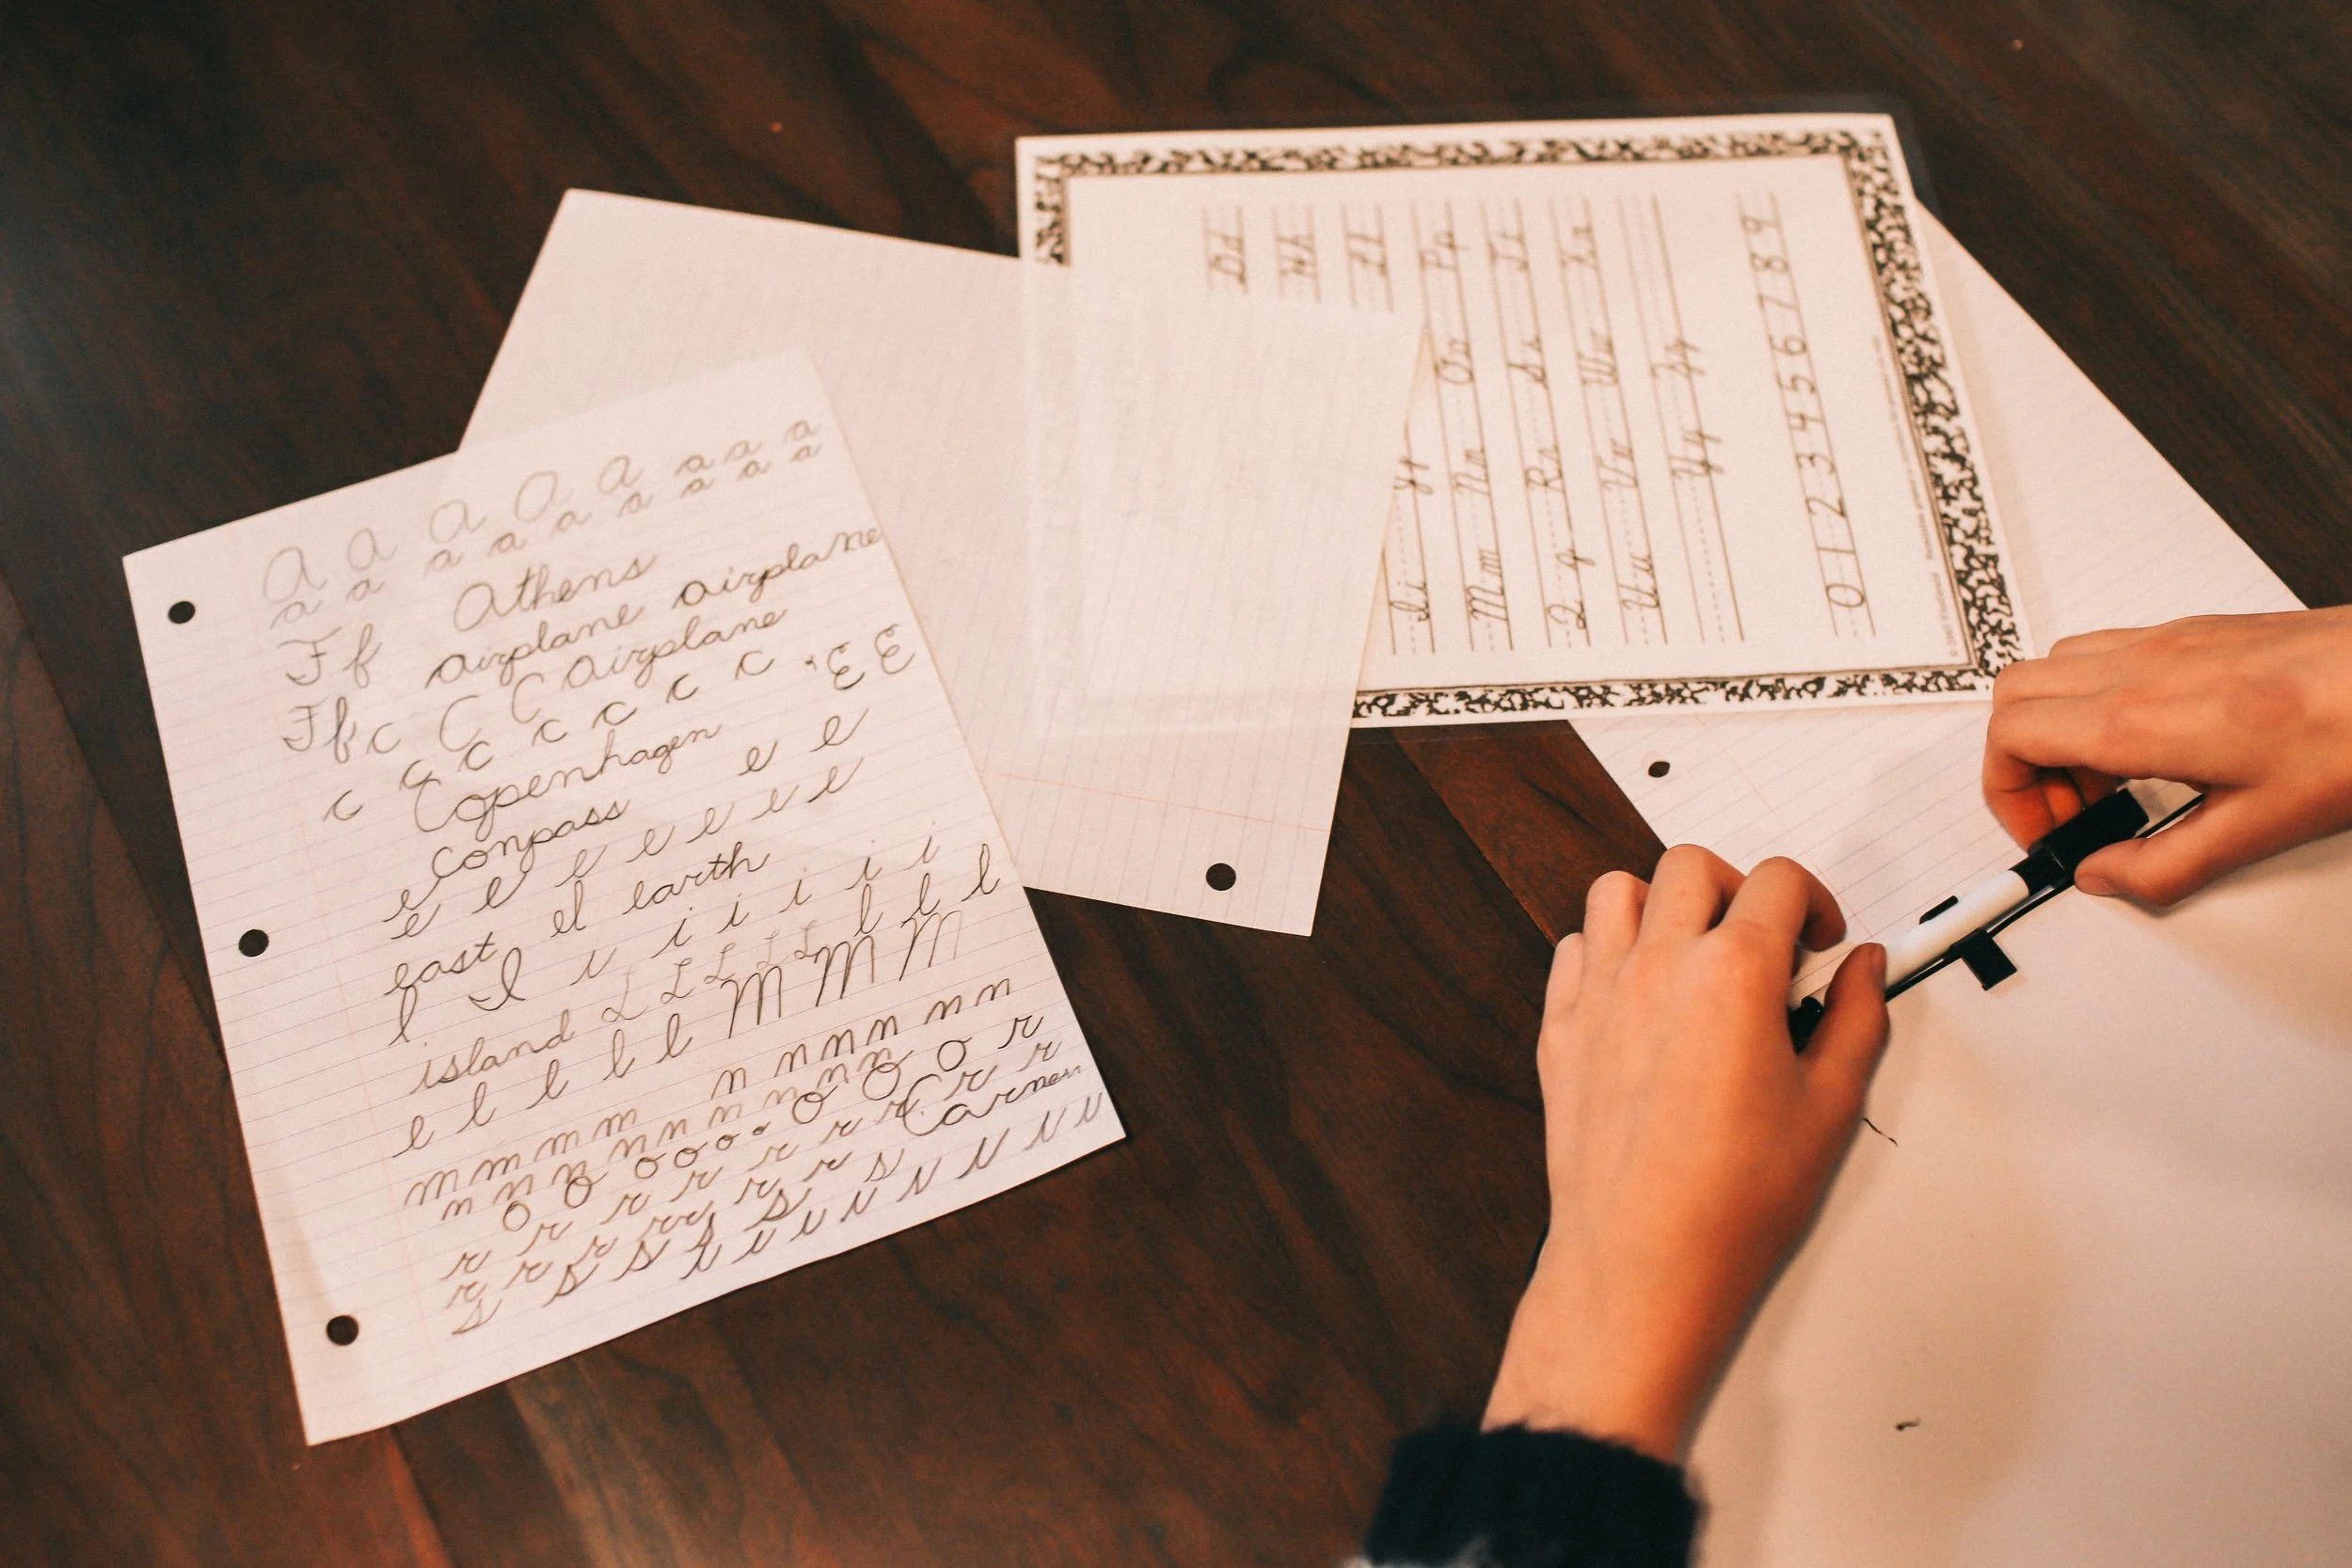 a a a a a a a a
a a a a a a a a
Ff Athens
airplane airplane
Ff c C C airplane
c c c c c c c E E
Copenhagen
compass e e
e e e e e e e
east el earth
l I i i i i i i
island L L L L L l l l
l l l l l M M M
m m m m n n n n n n
n n n n n n n n n n
o o o o o o o o o r
r r r r r r r r r
r r r r r r r r Carmen
s s s s s s
Dd
Hh
Ll
Ii Jj
Mm Nn Oo Pp
Qq Rr Ss Tt
Uu Vv Ww Xx
Yy Zz
0 1 2 3 4 5 6 7 8 9